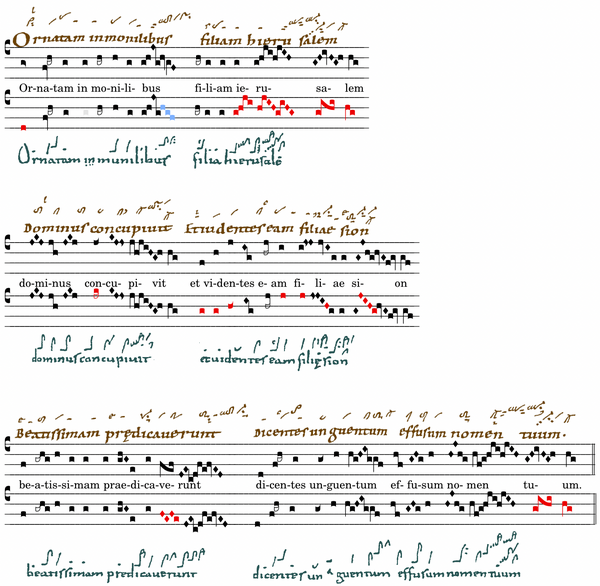 Ornatam in monilibus filiam hieru salem
Or-na-tam in mo-ni-li- bus fi-li-am ie- ru- sa- lem
Ornatam in munilibus filia hierusalē
Dominus concupiuit Et uidentes eam filiae sion
do-mi-nus con-cu- pi- vit et vi-den-tes e-am fi- li- ae si- on
dominus concupiuit et uidentes eam filię sion
Beatissimam prędicauerunt Dicentes unguentum effusum nomen tuum.
be-a-tis-si-mam prae-di-ca-ve- runt di-cen-tes un-guen-tum ef- fu-sum no-men tu- um.
beatissimam predicauerunt dicentes un guentum effusum nomen tuum